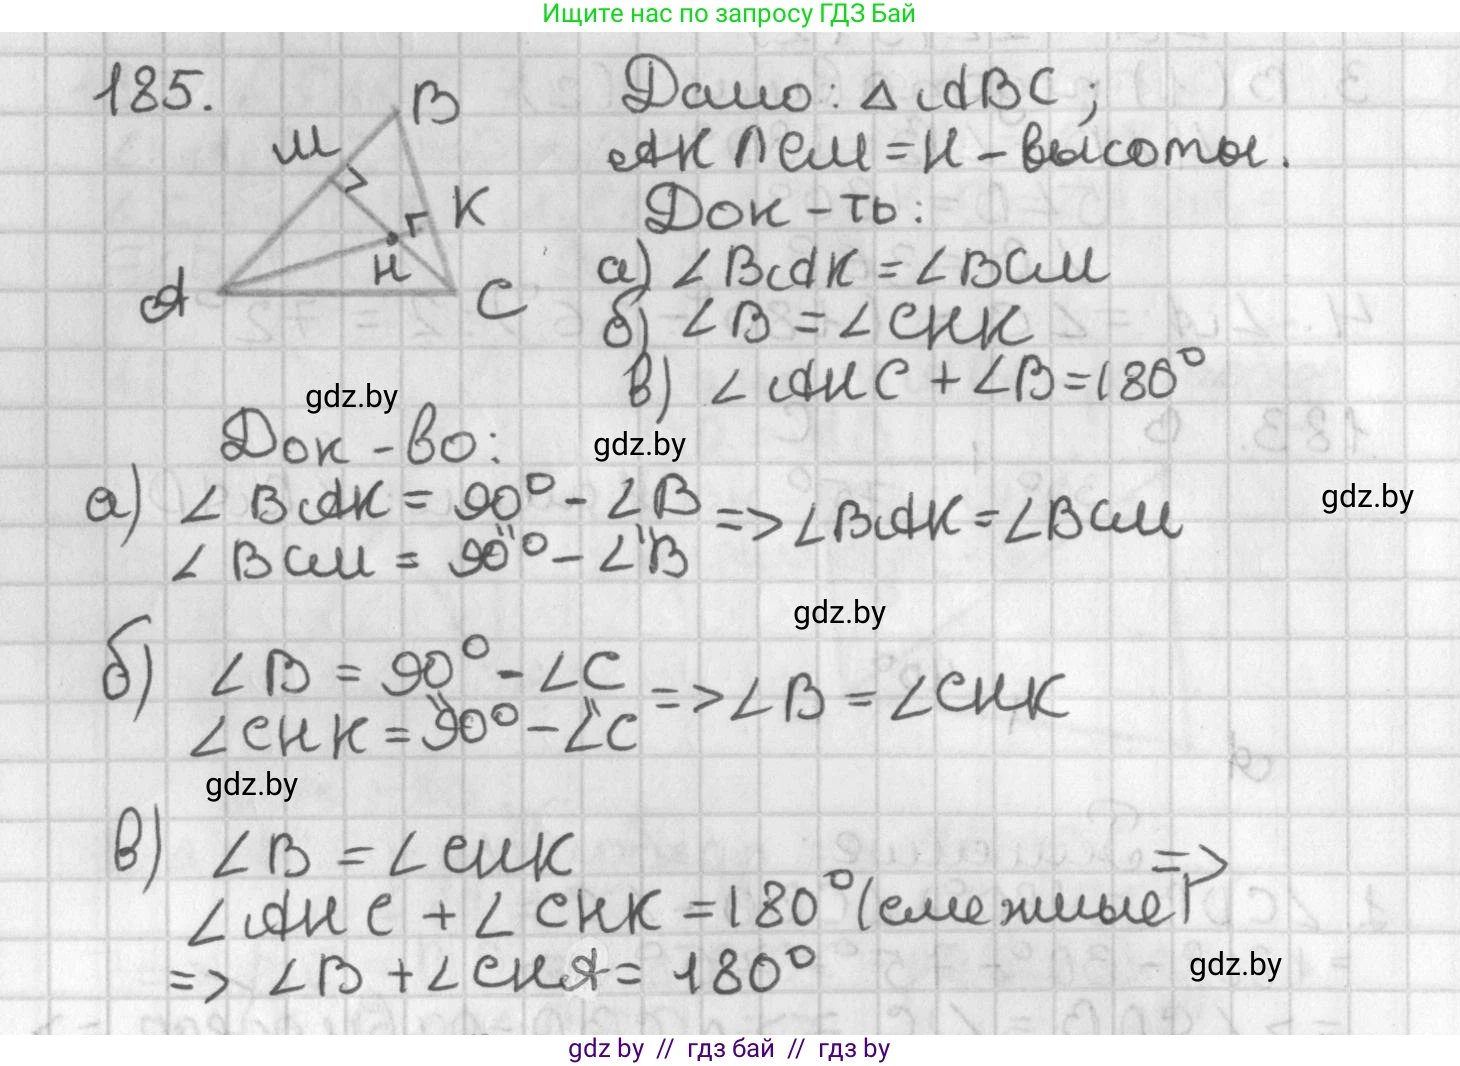 Ищите нас по запросу ГДЗ Бай
185.
B
M
K
H
A
C
Дано: △ABC;
AK ∩ CM = H - высоты.
Док-ть:
а) ∠BAK = ∠BCM
б) ∠B = ∠CHK
в) ∠AHC + ∠B = 180°
gdz.by
Док-во:
gdz.by
gdz.by
а) ∠BAK = 90° - ∠B
∠BCM = 90° - ∠B
=> ∠BAK = ∠BCM
gdz.by
б) ∠B = 90° - ∠C
∠CHK = 90° - ∠C
=> ∠B = ∠CHK
gdz.by
в) ∠B = ∠CHK
=>
∠AHC + ∠CHK = 180° (смежные)
=> ∠B + ∠CHA = 180°
gdz.by
gdz by // гдз бай // гдз by